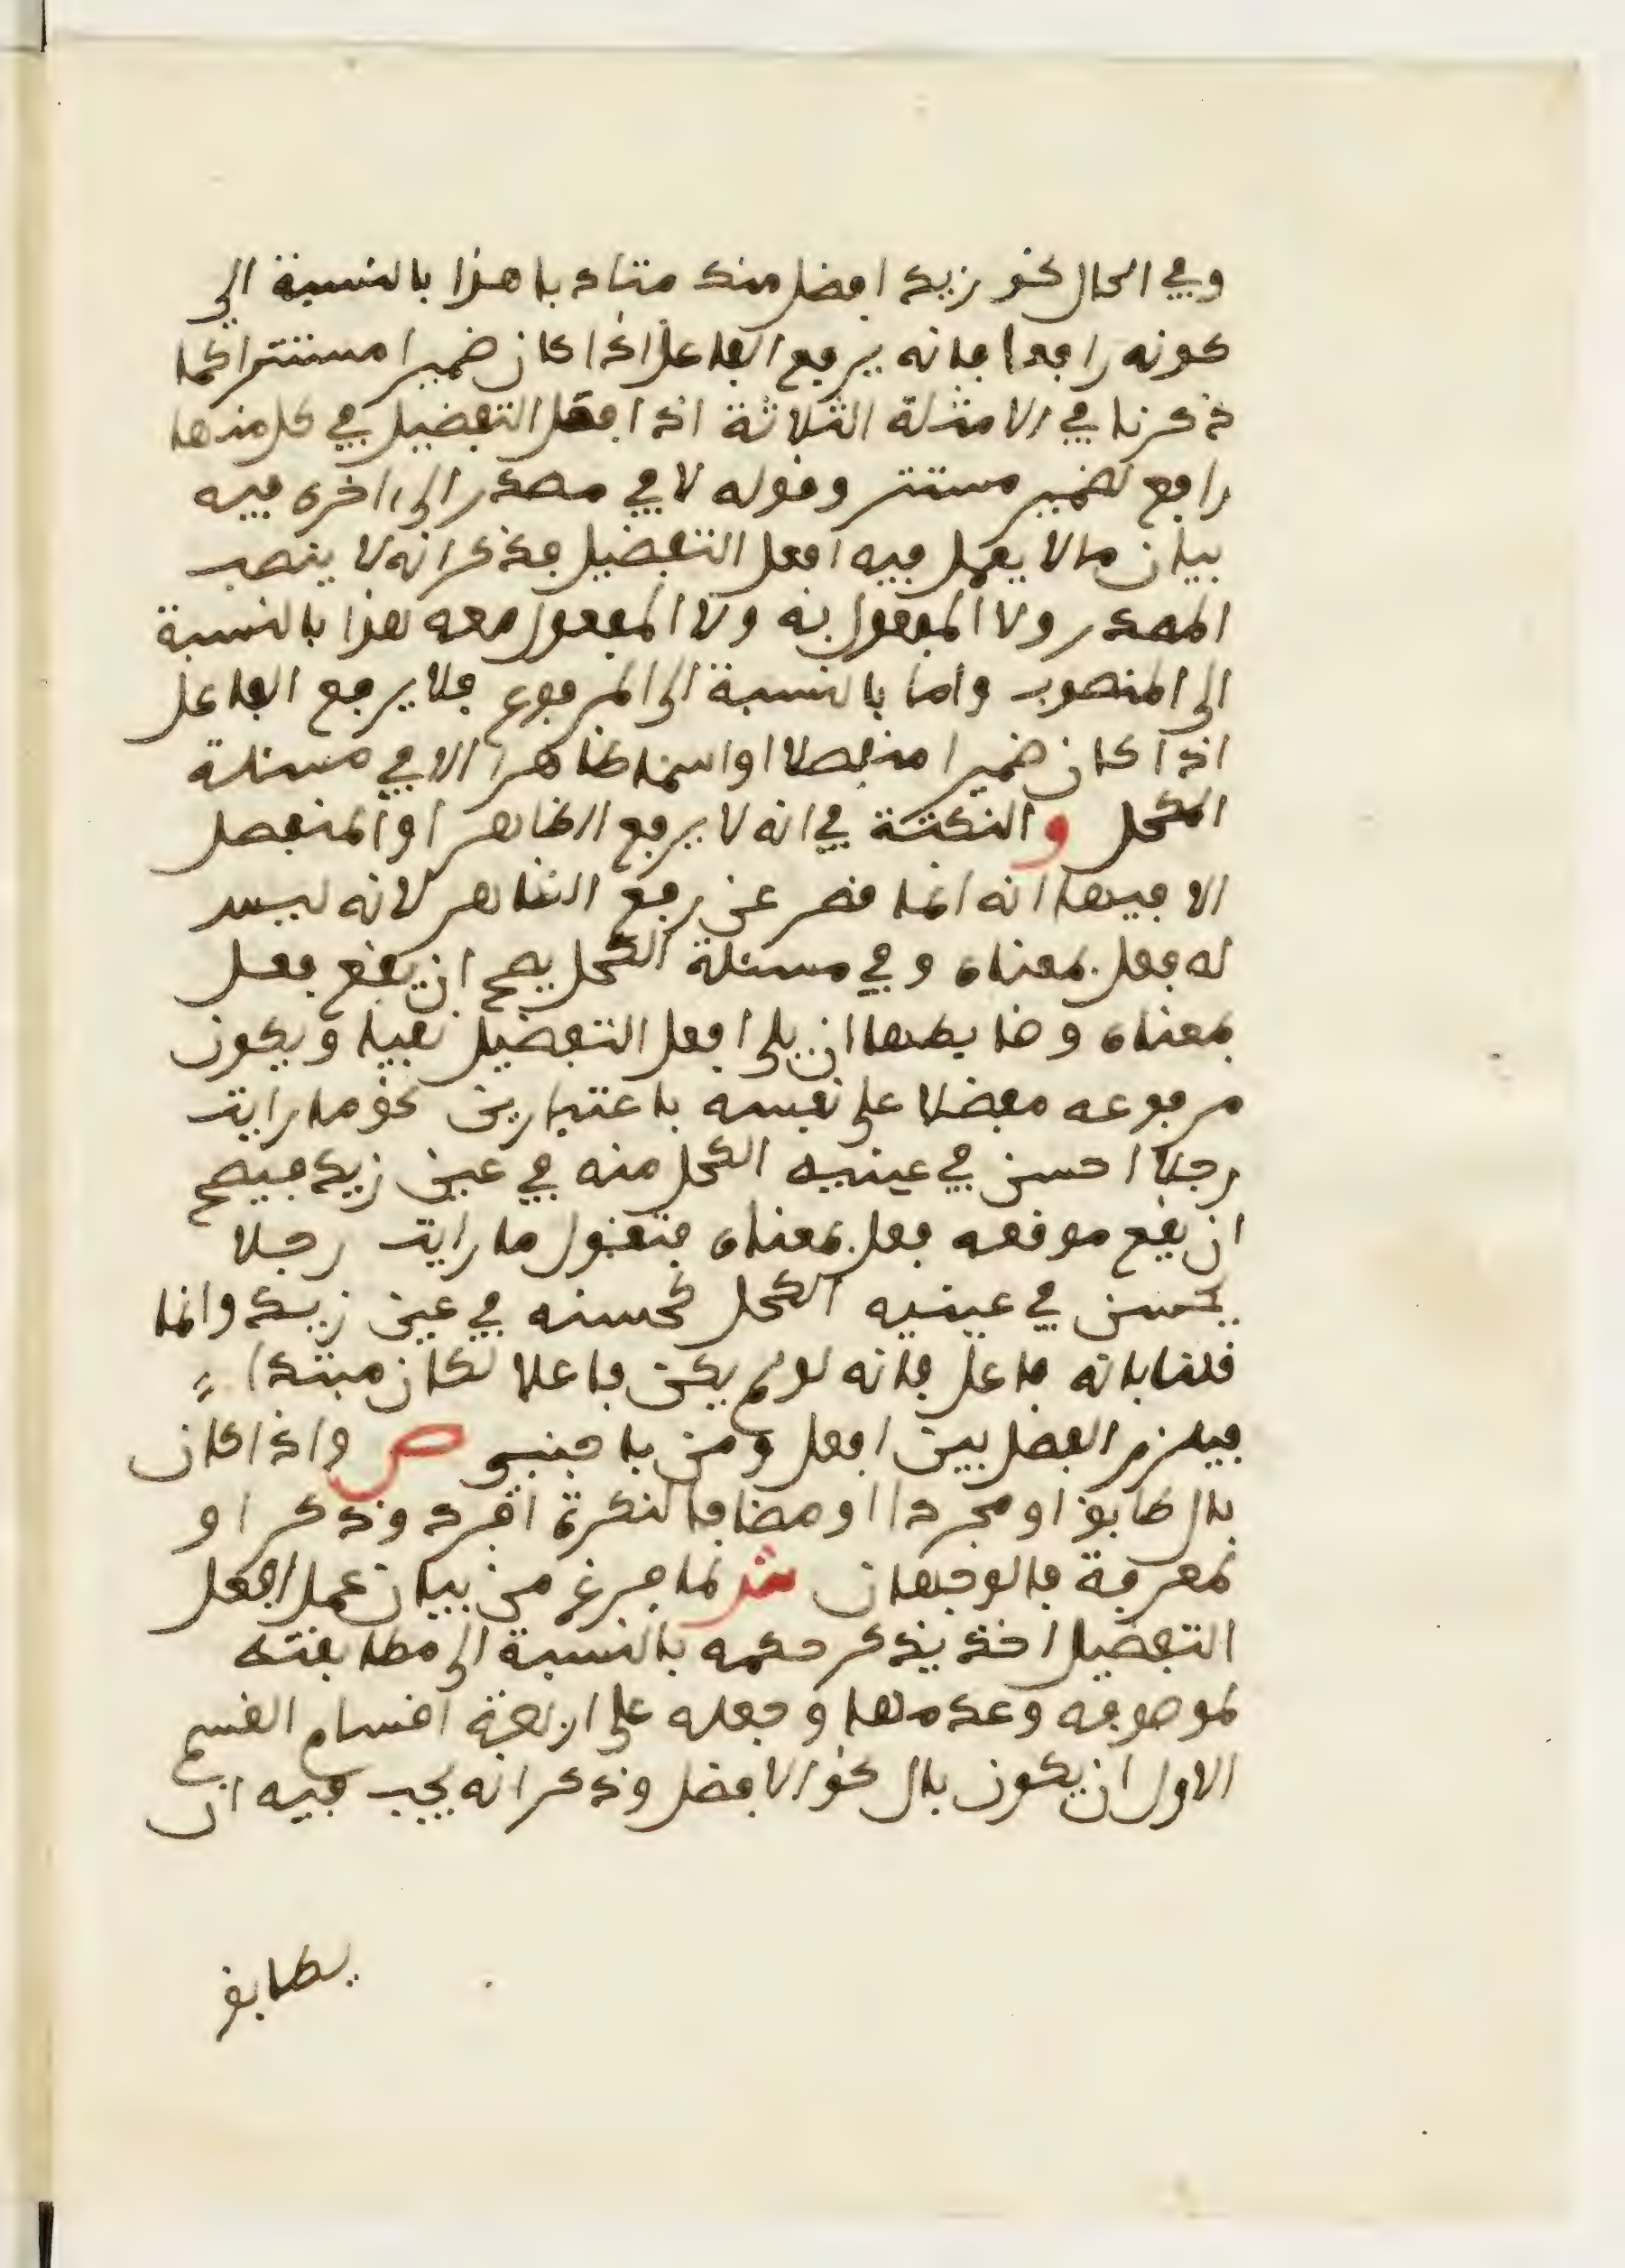 وفي الحال نحو زيد افضل منك متادبا هذا بالنسبة الى
كونه رافعا فانه يرفع الفاعل اذا كان ضميرا مستترا كما
ذكرنا في الامثلة الثلاثة اذ افعل التفضيل في كل منها
رافع لضمير مستتر وقوله لا في مصدر الى اخره فيه
بيان ما لا يعمل فيه افعل التفضيل فذكر انه لا ينصب
المصدر ولا المفعول به ولا المفعول معه هذا بالنسبة
الى المنصوب واما بالنسبة الى المرفوع فلا يرفع الفاعل
اذا كان ضميرا منفصلا او اسما ظاهرا الا في مسئلة
الكحل والنكتة في انه لا يرفع الظاهر او المنفصل
الا فيها انه انما قصر عن رفع الظاهر لانه ليس
له فعل بمعناه وفي مسئلة الكحل يصح ان يقع فعل
بمعناه وضابطها ان يلي افعل التفضيل نفيا ويكون
مرفوعه مفضلا على نفسه باعتبارين نحو ما رايت
رجلا احسن في عينيه الكحل منه في عين زيد فيصح
ان يقع موقعه فعل بمعناه فتقول ما رايت رجلا
يحسن في عينيه الكحل كحسنه في عين زيد وانما
قلنا بانه فاعل فانه لو لم يكن فاعلا لكان مبتدا
فيلزم الفصل بين افعل ومن باجنبي ص واذا كان
بال طابق او مجردا او مضافا لنكرة افرد وذكر او
لمعرفة فالوجهان ش لما فرغ من بيان عمل افعل
التفضيل اخذ يذكر حكمه بالنسبة الى مطابقته
لموصوفه وعدمها وجعله على اربعة اقسام القسم
الاول ان يكون بال نحو الافضل وذكر انه يجب فيه ان
يطابق